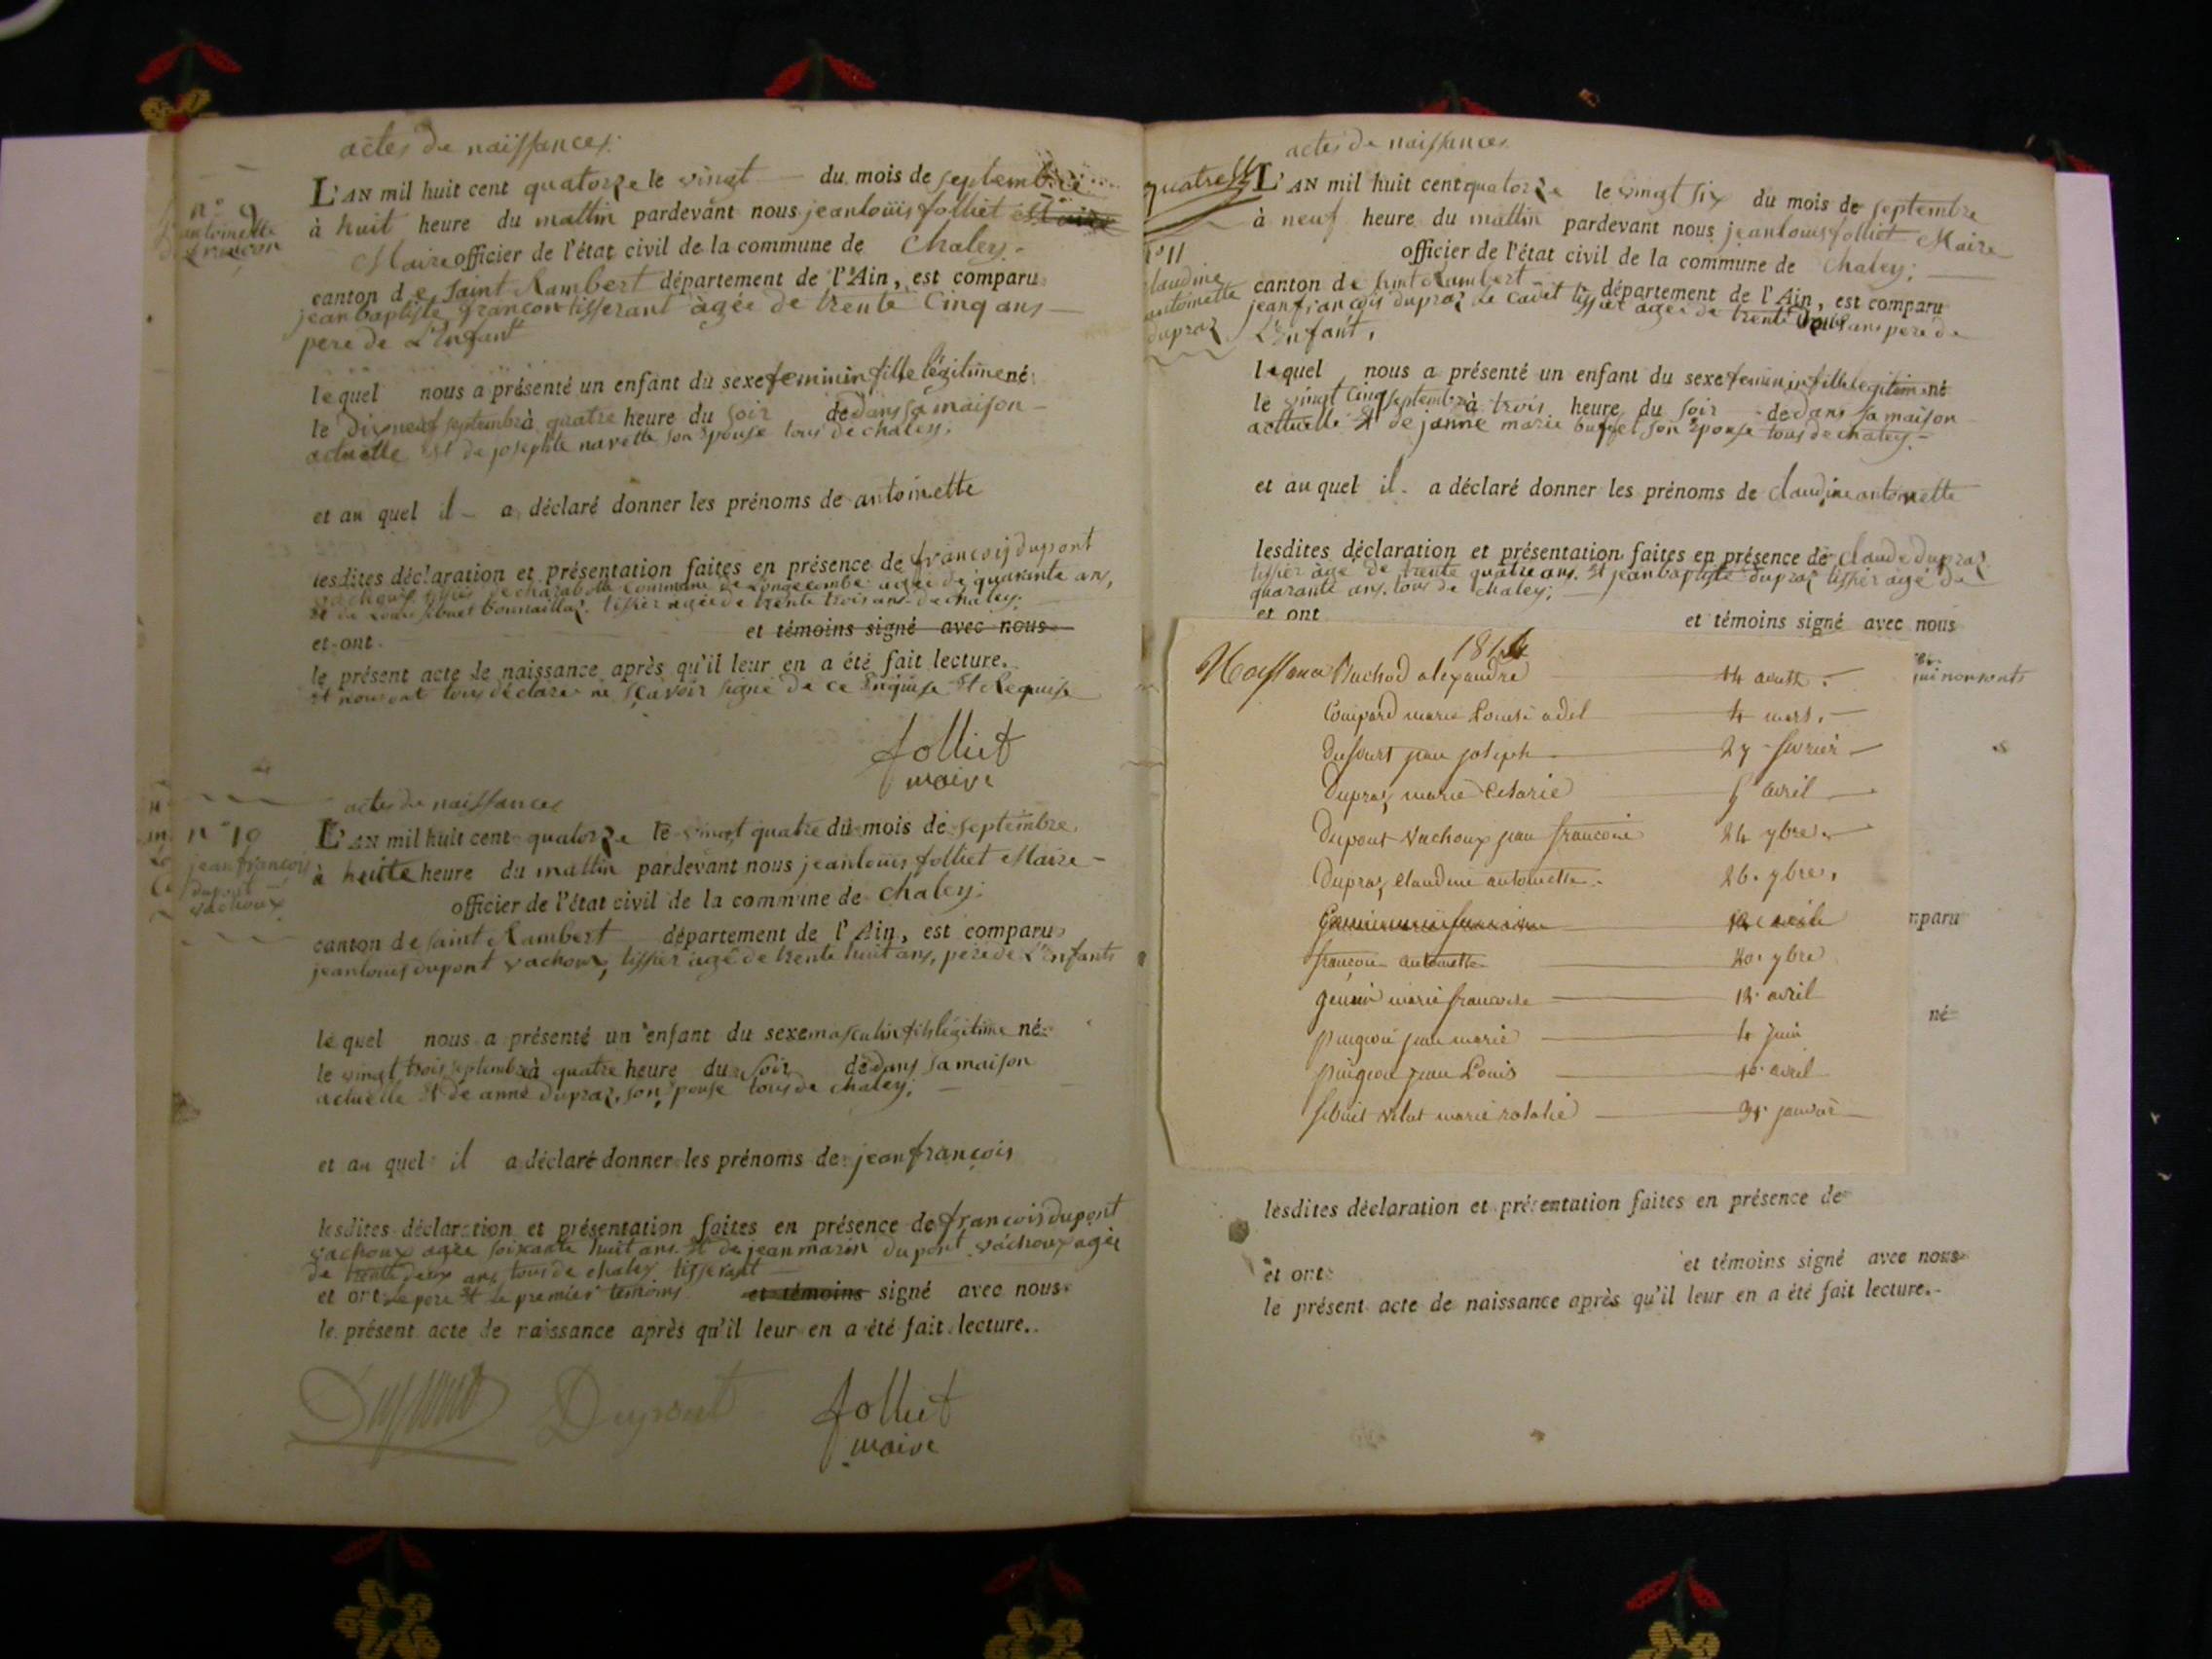 actes de naissances.
n° 9
antoinette
françon
L'AN mil huit cent quatorze le vingt du mois de septembre
à huit heure du mattin pardevant nous jeanlouis folliet
Maire officier de l'état civil de la commune de Chaley.
canton de Saint Rambert département de l'Ain, est comparu
jean baptiste françon tisserant agée de trente Cinq ans
pere de L'Enfant
lequel nous a présenté un enfant du sexe feminin fille légitime né
le Dix neuf septembre à quatre heure du soir de dans sa maison
actuelle Et de josephte navette son Epouse tous de chaley.
et au quel il a déclaré donner les prénoms de antoinette
lesdites déclaration et présentation faites en présence de françois dupont
vachoux tissier de charabotte commune de Longecombe agée de quarante ans,
Et de Louis sibuet bonnaillaz tissier agée de trente trois ans de chaley.
et ont et témoins signé avec nous
le présent acte de naissance après qu'il leur en a été fait lecture.
Et nous ont tous déclaré ne sçavoir signé de ce Enquise Et Requise
folliet
maire
actes de naissances
n° 10
jean françois
dupont
vachoux
L'AN mil huit cent quatorze le vingt quatre du mois de septembre
à huitte heure du mattin pardevant nous jeanlouis folliet Maire
officier de l'état civil de la commune de chaley.
canton de saint Rambert département de l'Ain, est comparu
jean louis dupont vachoux, tissier agé de trente huit ans, pere de L'Enfants
lequel nous a présenté un enfant du sexe masculin fils légitime né
le vingt trois septembre à quatre heure du soir de dans sa maison
actuelle Et de anne dupraz, son Epouse tous de chaley;
et au quel il a déclaré donner les prénoms de jean françois
lesdites déclaration et présentation faites en présence de françois dupont
vachoux agée soixante huit ans Et de jean marin dupont vachoux agée
de trente deux ans tous de chaley tisserant
et ont Le pere Et le premier temoins et témoins signé avec nous
le présent acte de naissance après qu'il leur en a été fait lecture.
Dupont folliet
maire
actes de naissances
quatre
n° 11
claudine
antoinette
dupraz
L'AN mil huit cent quatorze le vingt six du mois de septembre
à neuf heure du mattin pardevant nous jeanlouis folliet Maire
officier de l'état civil de la commune de chaley;
canton de saint Rambert département de l'Ain, est comparu
jean françois dupraz Le cadet tissier agée de trente ans pere de
L'Enfant,
lequel nous a présenté un enfant du sexe feminin fille legitime né
le vingt Cinq septembre à trois heure du soir de dans sa maison
acttuelle Et de janne marie buffet son Epouse tous de chaley
et au quel il a déclaré donner les prénoms de claudine antoinette
lesdites déclaration et présentation faites en présence de claude dupraz
tissier agé de trente quatre ans. Et jean baptiste dupraz tissier agé de
quarante ans. tous de chaley;
et ont et témoins signé avec nous
1814
Naissance Vuchod alexandre 14 aoust
Compard marie Louise adel 4 mars.
Dufourt jean joseph 27 fevrier
Dupraz marie Cesarie 5 avril
Dupont Vachoux jean francois 24 7bre
Dupraz Claudine antoinette 26. 7bre.
françon antoinette 20. 7bre
genin marie francoise 12 avril
pingeon jean marie 4 juin
pingeon jean Louis 10 avril
sibuet velat marie rosalie 31 janvier
mparu
né
lesdites déclaration et présentation faites en présence de
et ont et témoins signé avec nous
le présent acte de naissance après qu'il leur en a été fait lecture.